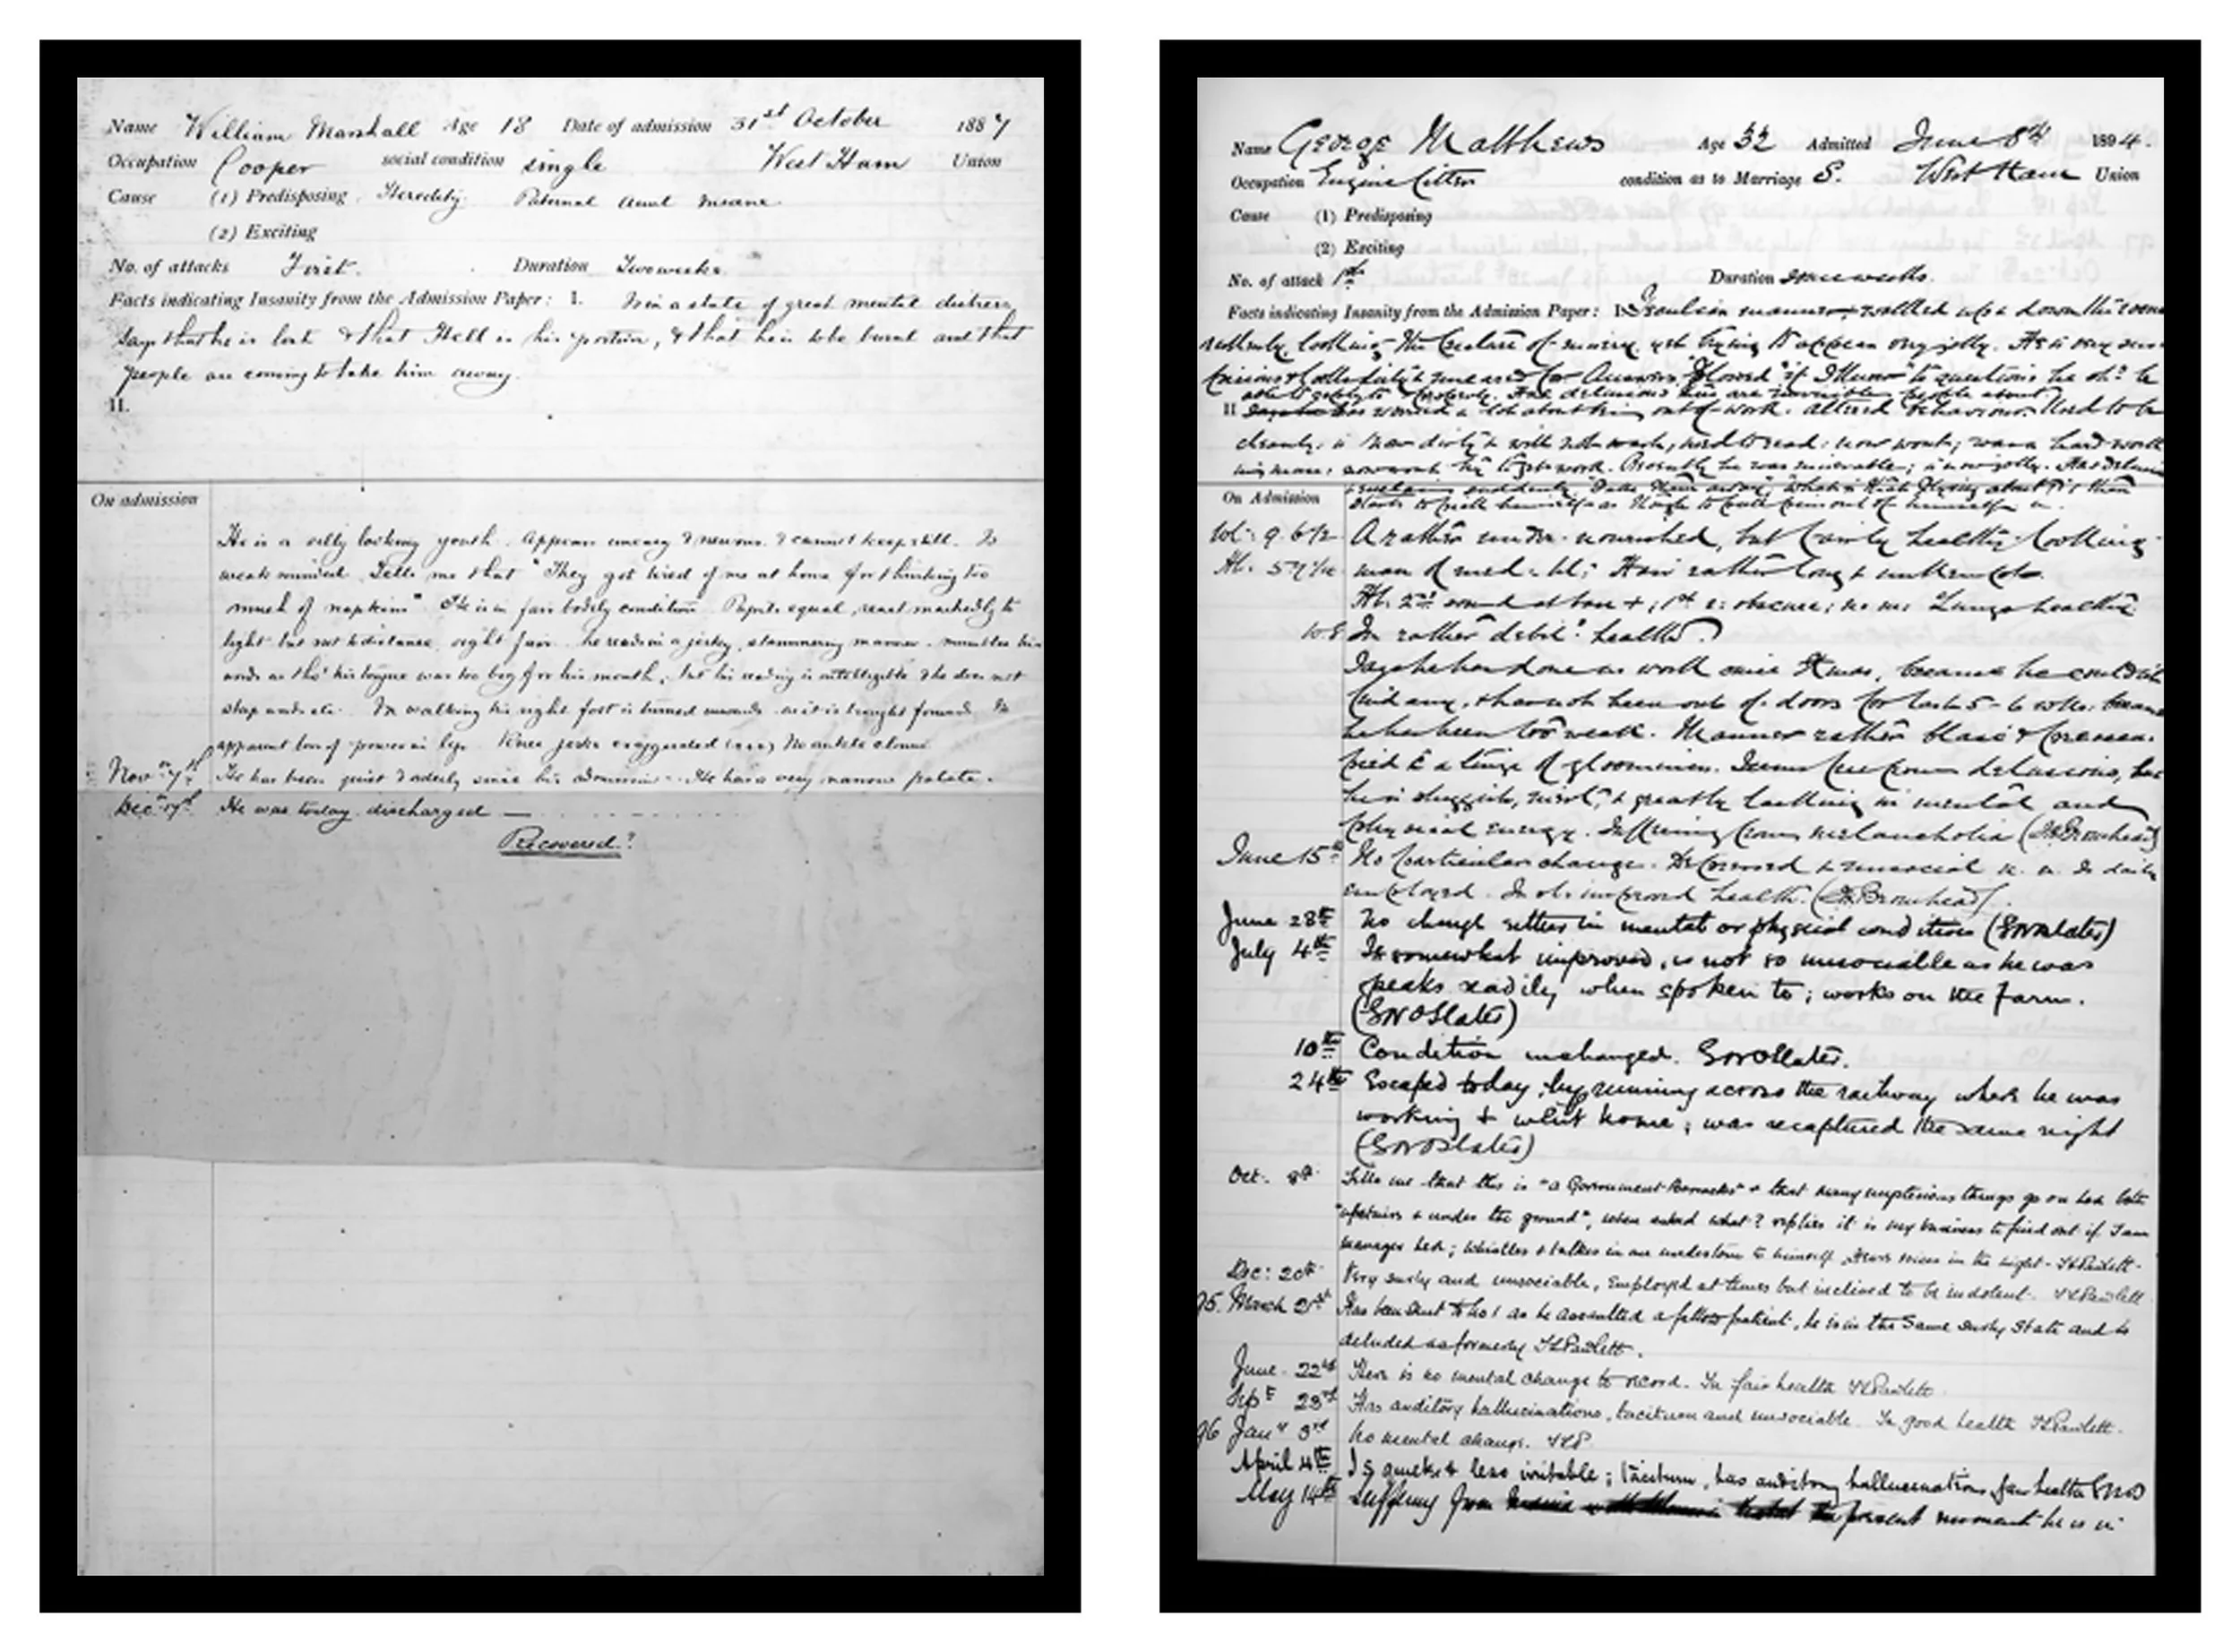 Name William Marshall Age 18 Date of admission 31st October 1887
Occupation Cooper social condition single West Ham Union
Cause (1) Predisposing Heredity. Paternal Aunt insane.
(2) Exciting
No. of attacks First. Duration Two weeks.
Facts indicating Insanity from the Admission Paper: I. in a state of great mental distress,
says that he is lost & that Hell is his portion, & that he is to be burnt and that
people are coming to take him away.
II.
On admission
He is a silly looking youth. Appears uneasy & nervous & cannot keep still. Is
weak minded. Tells me that "They got tired of me at home for thinking too
much of napkins" He is in fair bodily condition. Pupils equal, react markedly to
light but not to distance, sight fair. he reads in a jerky, stammering manner. mumbles his
words as tho' his tongue was too big for his mouth, but his reading is intelligible & he does not
stop words etc. In walking his right foot is turned inwards as it is brought forward. No
apparent loss of power in legs. Knee jerks exaggerated No ankle clonus
Nov. 7th He has been quiet & orderly since his admission. He has a very narrow palate.
Dec. 17th He was today discharged
Recovered?
Name George Matthews Age 32 Admitted June 8th 1894.
Occupation Engine fitter condition as to Marriage S. West Ham Union
Cause (1) Predisposing
(2) Exciting
No. of attack 1st Duration weeks.
Facts indicating Insanity from the Admission Paper: I. Peculiar manner, walked up & down the room
restlessly, looking the creature of misery, yet trying to appear very jolly. He is very sus-
picious & Answers "Blowed if I know" to questions he ought to be
able to reply to properly. Has delusions there are invisible people about
II has worried a lot about being out of work. Altered behaviour. Used to be
cleanly, is now dirty & will not wash, used to read: now wont; was a hard work
ing man: now wont try to get work. Recently he was miserable; is now jolly. Has delusions
& exclaims suddenly "Take them away", "What is that flying about"? & then
starts to
On Admission
Wt: 9. 6½ A rather under-nourished, but fairly healthy-looking
Ht. 5 7¼ man of med. ht; Hair rather long & unkempt.
Ht. 2nd sound at base +; 1st is obscure; no m: Lungs healthy.
In rather debil. health.
Says he has done no work since Xmas, because he couldn't
find any, & has not been out of doors for last 5-6 wks. because
he has been too weak. Manner rather blasé & preoccu-
pied & a tinge of gloominess. Seems free from delusions, but
he is sluggish, & greatly lacking in mental and
physical energy. Suffering from melancholia (Bromhead)
June 15th No particular change. Depressed & unsocial. Is daily
employed. In improved health. (Bromhead).
June 28th No change either in mental or physical condition (Slater)
July 4th Is somewhat improved, is not so unsociable as he was
speaks readily when spoken to; works on the farm.
(Slater)
10th Condition unchanged. Slater.
24th Escaped today by running across the railway where he was
working & went home; was recaptured the same night
(Slater)
Oct. 8th Tells me that this is "a Government Barracks" & that many mysterious things go on here both
"upstairs & under the ground", when asked what? replies it is my business to find out if I am
manager here; whistles & talks in an undertone to himself, hears voices in the night - Pawlett.
Dec: 20th Very surly and unsociable, employed at times but inclined to be indolent. Pawlett
95. March 21st Has been sent to as he assaulted a fellow patient, he is in the same surly state and is
deluded as formerly Pawlett.
June 22nd There is no mental change to record. In fair health Pawlett
Sept 23rd Has auditory hallucinations, taciturn and unsociable. In good health Pawlett.
96 Jany 3rd No mental change.
April 4th Is quieter & less irritable; taciturn, has auditory hallucinations, fair health
May 14th Suffering from present moment he is in